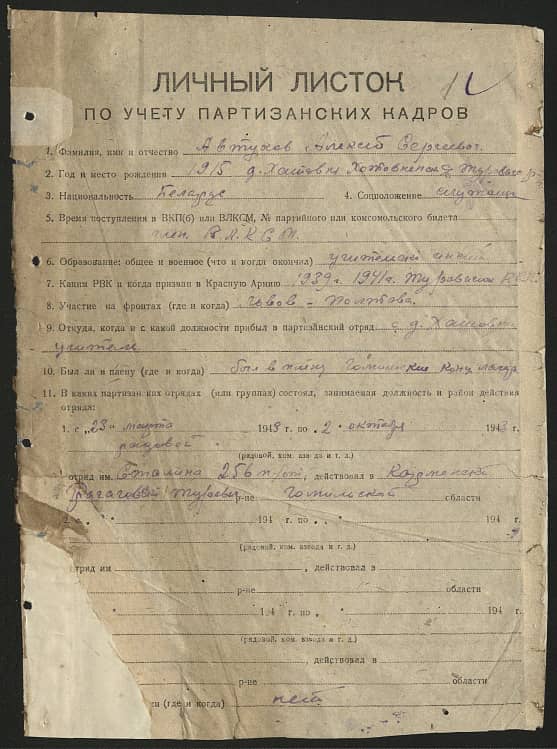 ЛИЧНЫЙ ЛИСТОК
ПО УЧЕТУ ПАРТИЗАНСКИХ КАДРОВ
1. Фамилия, имя и отчество Автухов Алексей Сергеевич
2. Год и место рождения 1915 д.
3. Национальность Беларус 4. Соцположение служащий
5. Время поступления в ВКП(б) или ВЛКСМ, № партийного или комсомольского билета
член В.Л.К.С.М.
6. Образование: общее и военное (что и когда окончил) учительский
7. Каким РВК и когда призван в Красную Армию 1939 г. 1941 г.
8. Участие на фронтах (где и когда) Львов – Полтава
9. Откуда, когда и с какой должности прибыл в партизанский отряд с д.
учитель
10. Был ли в плену (где и когда) был в плену
11. В каких партизан ких отрядах (или группах) состоял, занимаемая должность и район действия
отряда:
1. с „23" марта 1943 г. по „2" октября 1943 г.
рядовой
(рядовой, ком. взвода и т. д.)
отряд им Сталина 256 , действовал в
р-не Гомельской области
2. „ " 194 г. по „ " 194 г.
(рядовой, ком. взвода и т. д.)
тряд им , действовал в
р-не области
" 194 г. по " 194 г.
(рядовой, ком. взвода и т. д.)
, действовал в
р-не области
и (где и когда) нет